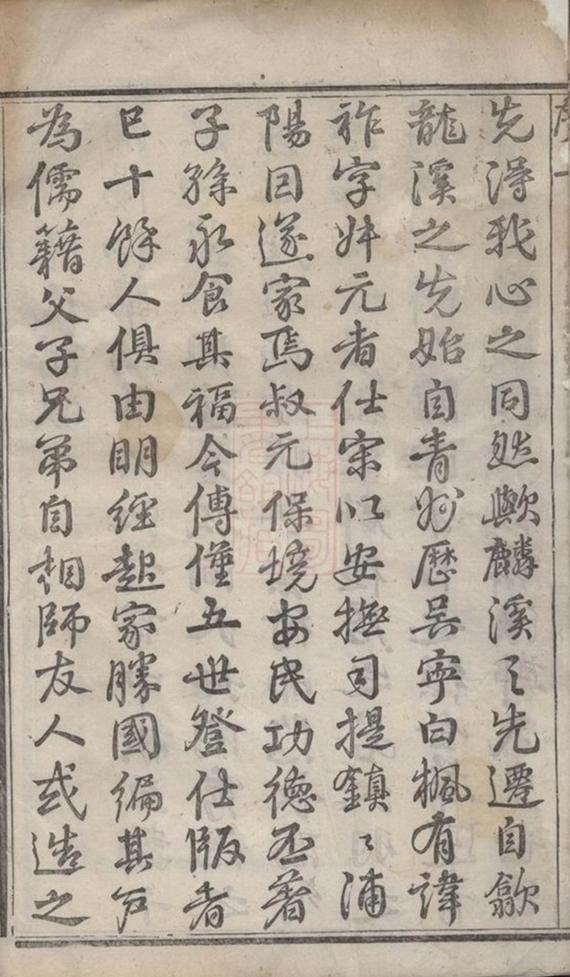 序一
先得我心之同然歟麟溪之先遷自歙
龍溪之先始自青州歷吳寧白楓有諱
祚字叔元者仕宋以安撫司提鎮〻浦
陽因遂家焉叔元保境安民功德丕著
子孫永食其福今傳僅五世登仕版者
已十餘人俱由明經起家勝國編其戶
為儒籍父子兄弟自相師友人或造之